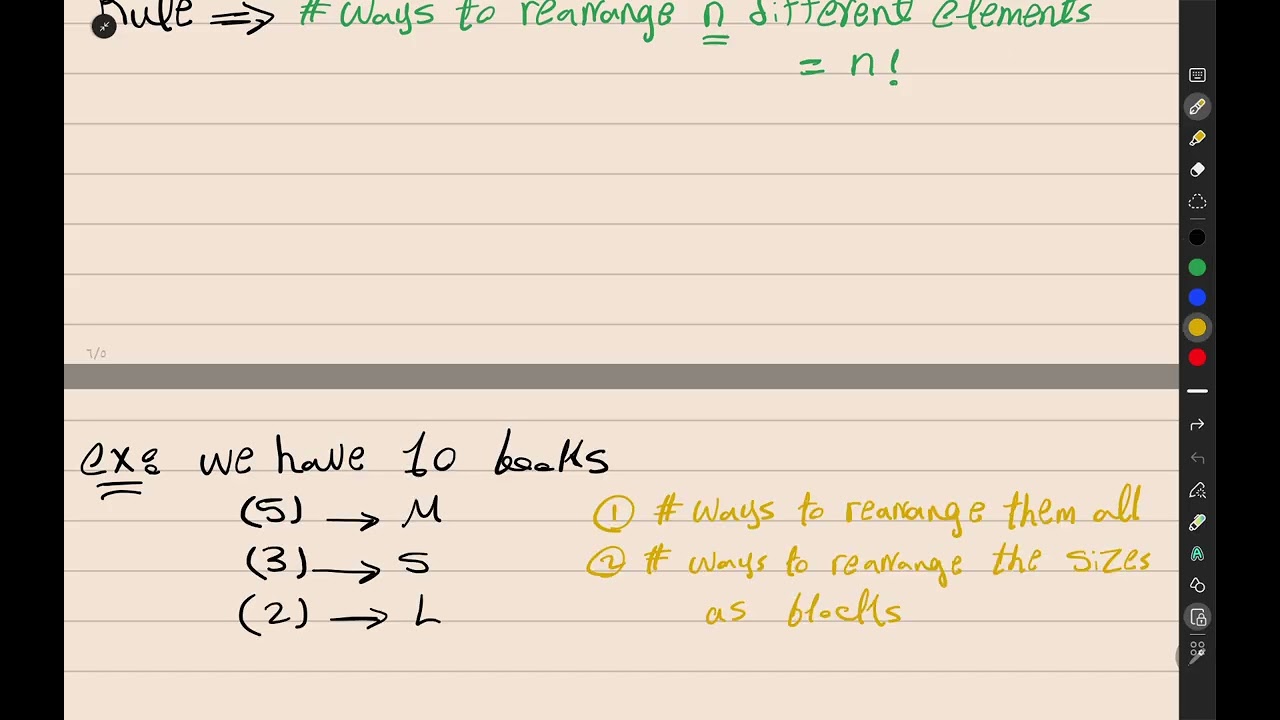 Rule ⇒ # ways to rearrange n different elements
= n!
ex: we have 10 books
(5) → M
(3) → S
(2) → L
① # ways to rearrange them all
② # ways to rearrange the sizes
as blocks